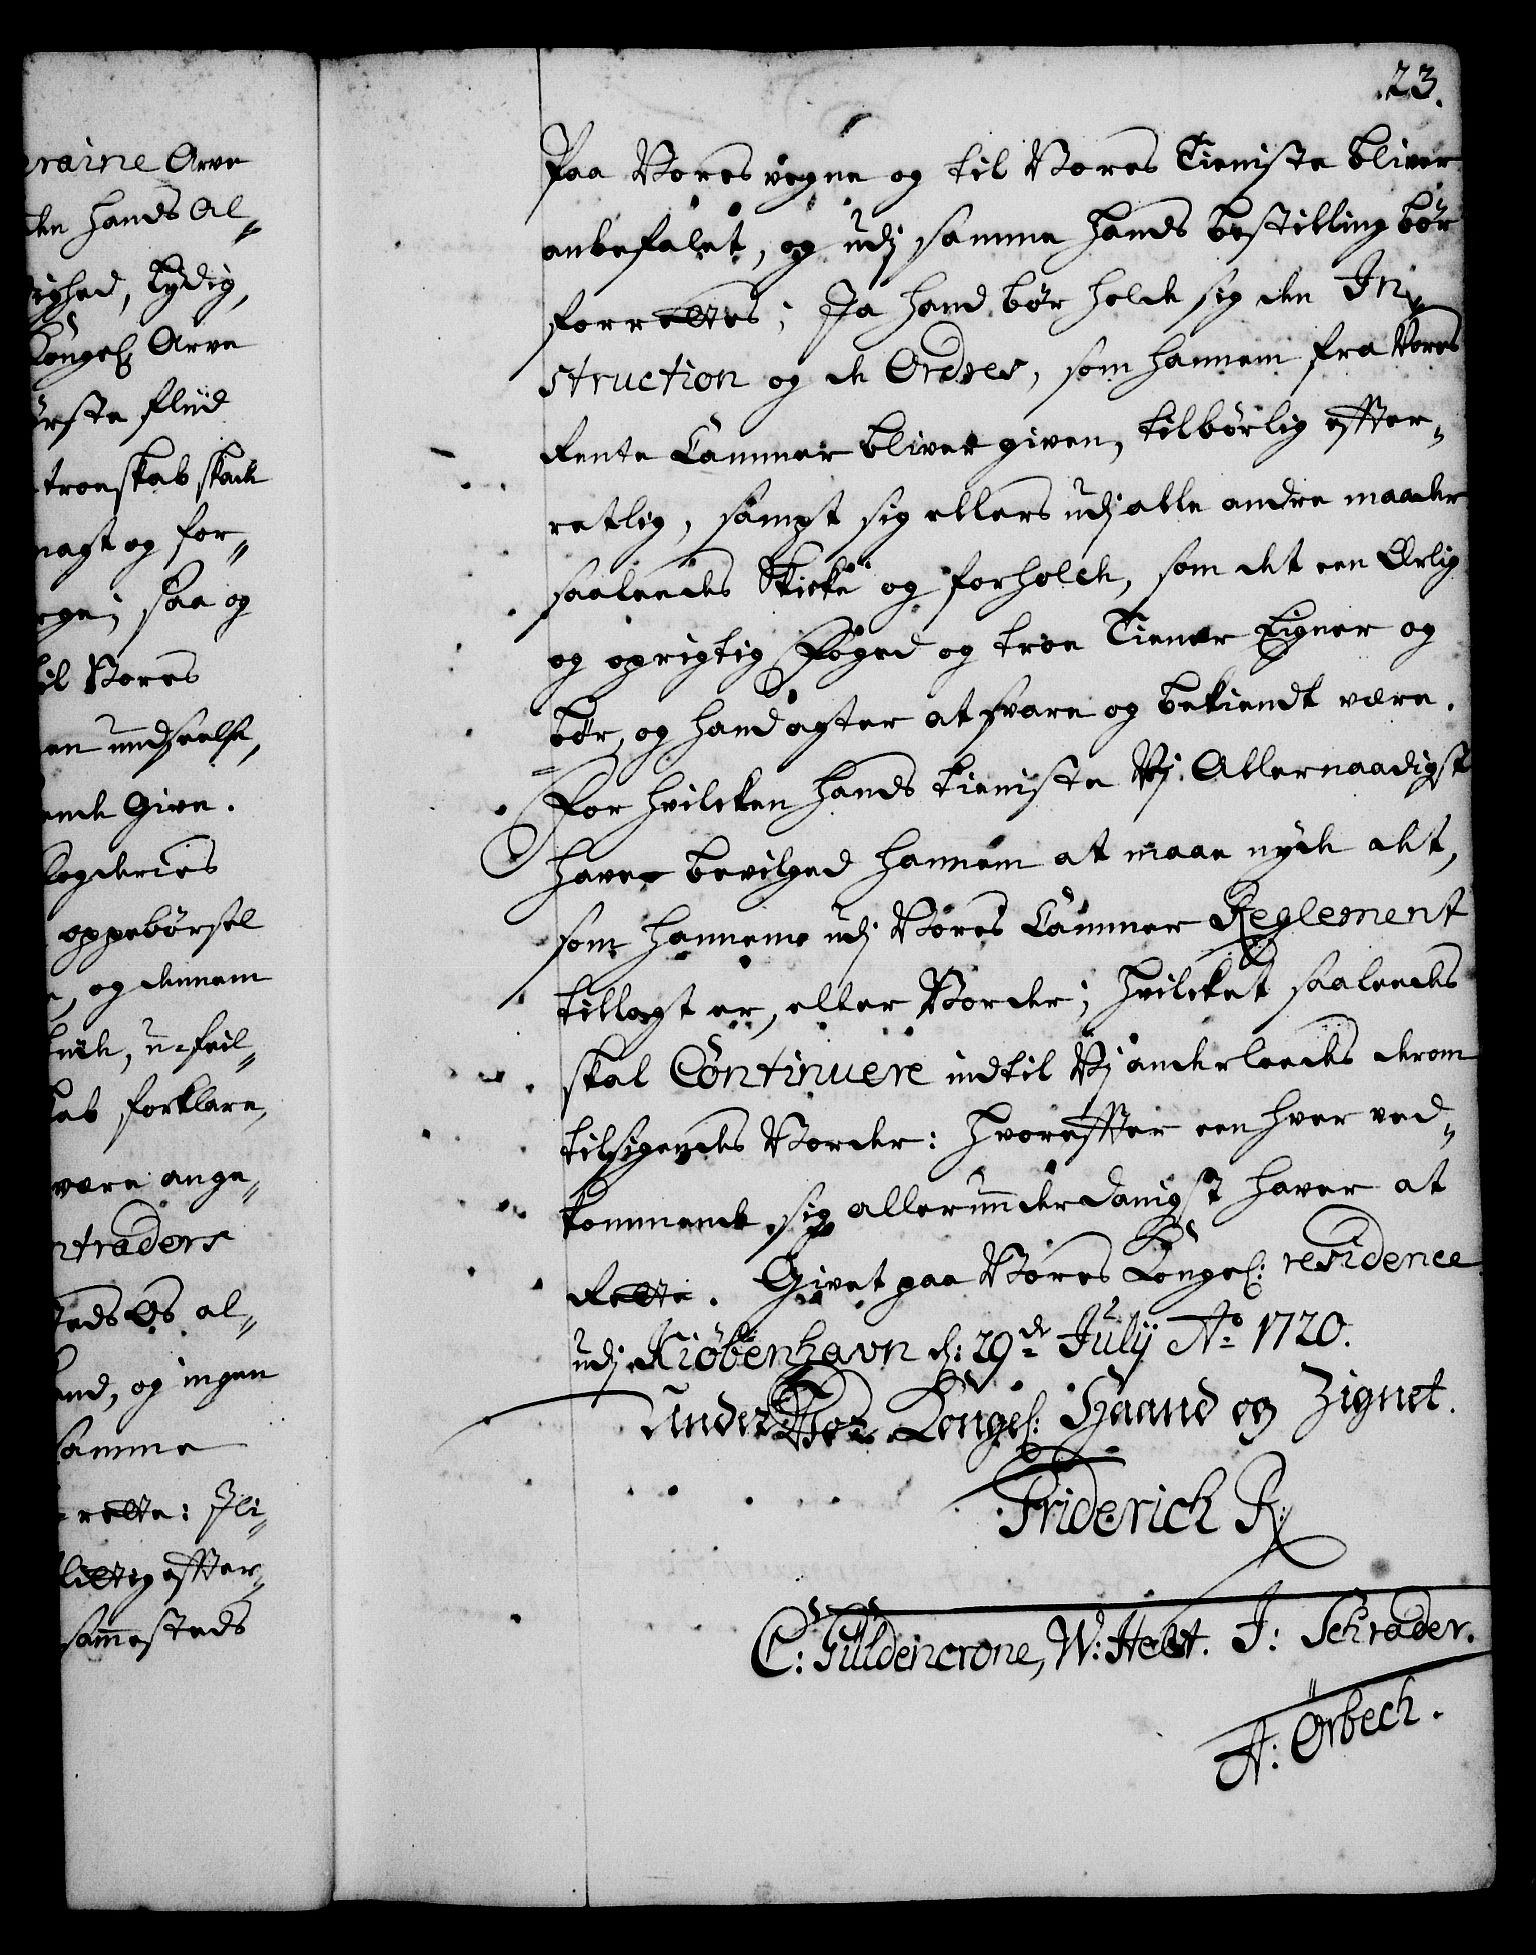 23.
raine Arve
den hands Al„
ighed, Lydig,
Kongel: Arve
ørste fliid
troeskab skade
magt og for„
rge; saa og
til Vores
en undseelse,
ende Give.
fogderies
oppebørsel
, og dennem
u-feil„
kab forklare,
være ange„
ntraders
steds Os al„
and, og ingen
samme
rette: Ili„
flittig effter„
sammesteds
Paa Vores vegne og til Vores Tieniste bliver
anbefalet, og udj samme hands bestilling bør
forrettes; Ja hand bør holde sig den In„
struction og de Ordres, som hannem fra Vores
Rente Cammer bliver given, tilbørlig effter„
retlig, sampt sig ellers udj alle andre maader
saaledes skicke og forholde, som det een Ærlig
og oprigtig Foged og troe Tiener Eigner og
bør, og hand agter at svare og bekiendt være.
For hvilcken hands tieniste Vj Allernaadigst
haver bevilged hannem at maae nyde det,
som hannem udj Vores Cammer Reglement
tillagt er, eller Vorder; hvilcket saaledes
skal Continuere indtil Vj anderledes derom
tilsigendes Vorder: hvoreffter een hver ved„
kommende sig allerunderdanigst haver at
Rette. Givet paa Vores Kongel: residence
udj Kiøbenhavn d: 29de Julij Ao 1720.
Under Vor Kongel: Haand og Zignet.
Friderich R:
C: Güldencrone, W: Helt. J: Schrader.
A: Ørbech.